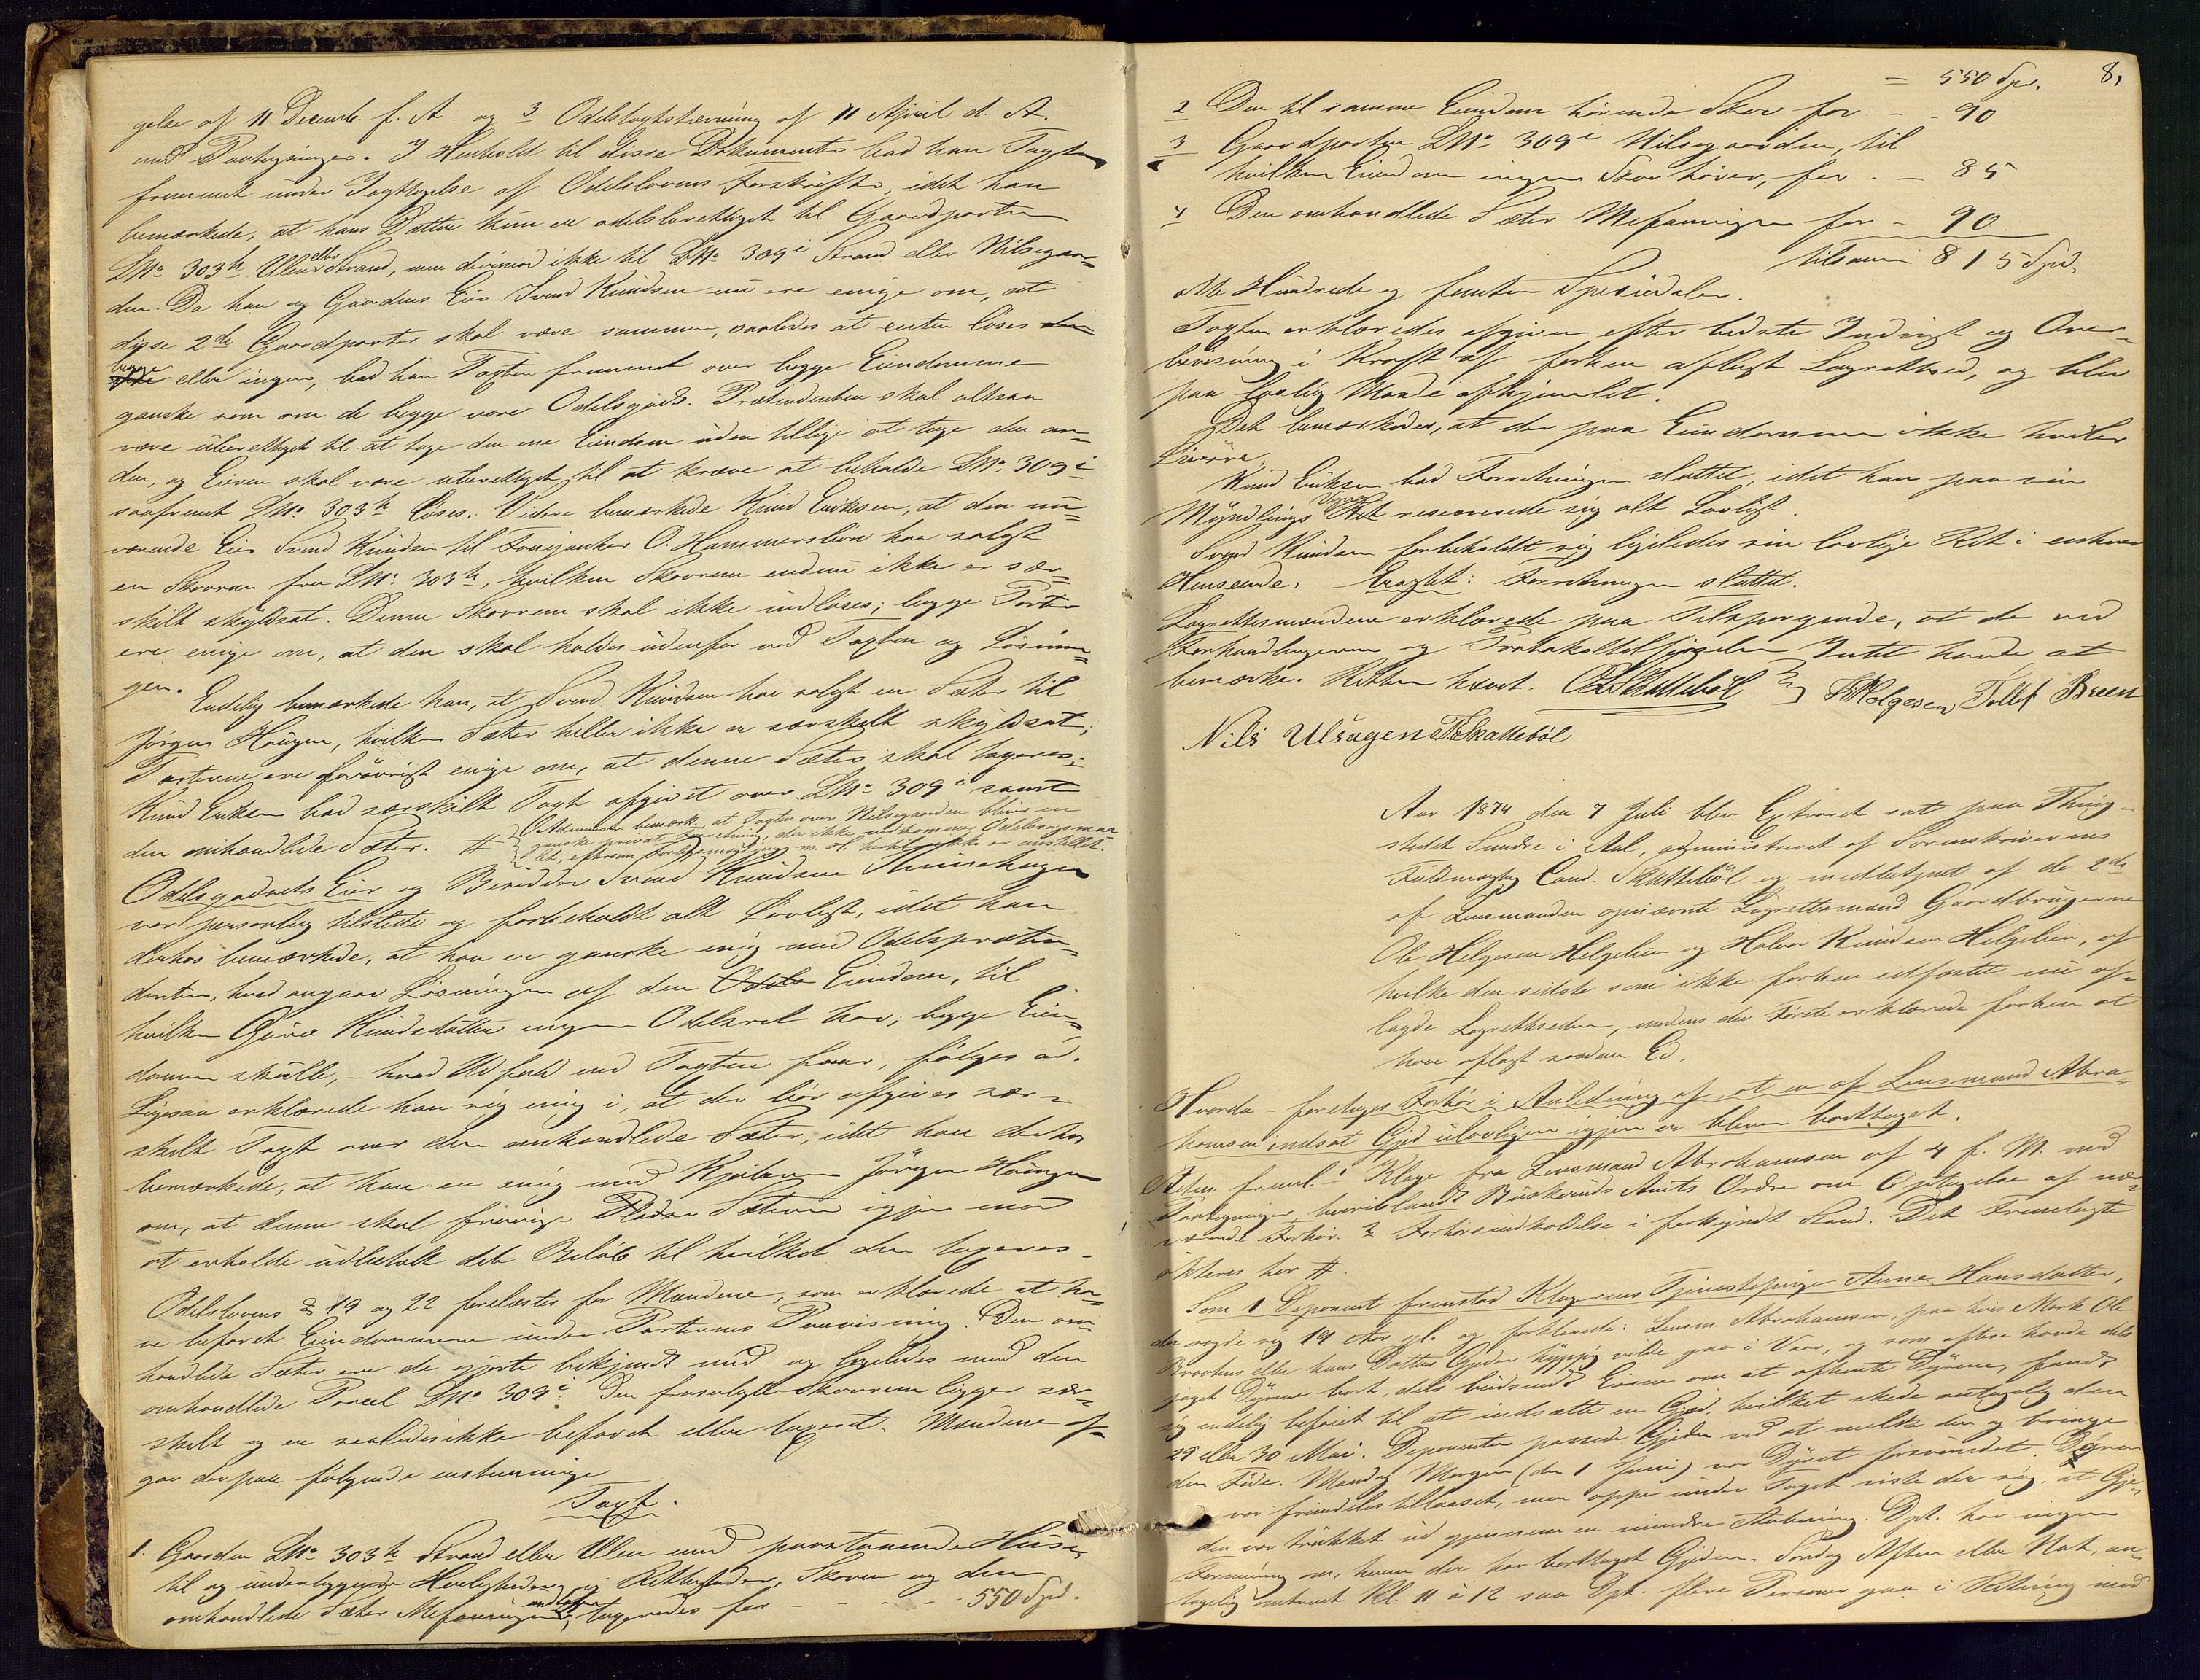 gelse af 11 Decemb. f. A. og 3 Odelstagtstævning af 11 April d. A.
med Paategninger. I Henhold til disse Dokumenter bad han Tagten
fremmet under Iagttagelse af Odelslovens Forskrifter, idet han
bemærkede, at hans Datter kun er odelsberettiget til Gaardparten
LNo 303h Ulen eller Strand, men derimod ikke til LNo 309i Strand eller Nilsgaar=
den. Da han og Gaardens Eier Svend Knudsen nu ere enige om, at
disse 2de Gaardparter skal være sammen, saaledes at enten løses
begge eller ingen, bad han Tagten fremmet over begge Eiendomme
ganske som om de begge vare Odelsgods. Prætendenten skal altsaa
være uberettiget til at tage den ene Eiendom uden tillige at tage den an=
den, og Eieren skal være uberettiget til at kræve at beholde LNo. 309i
saafremt LNo. 303h løses. Videre bemærkede Knud Eriksen, at den nu=
værende Eier Svend Knudsen til Fourjunker O. Hammersbøen har solgt
en Skovrem fra LNo. 303h, hvilken Skovrem endnu ikke er sær=
skilt skyldsat. Denne Skovrem skal ikke indløses; begge Parter
ere enige om, at den skal holdes udenfor ved Tagten og Løsnin=
gen. Endelig bemærkede han, at Svend Knudsen har solgt en Sæter til
Jørgen Haugen, hvilken Sæter heller ikke er særskilt skyldsat;
Parterne ere forøvrigt enige om, at denne Sæter skal tageres;
Knud Eriksen bad særskilt Tagt afgivet over LNo 309i samt
den omhandlede Sæter. # Administr. bemærk. at Tagten over Nilsgaarden bliver en
ganske privat Forretning, der ikke vedkommer Odelssøgsmaa
let, eftersom Forligsmægling m. H. hertil ikke er anstillet.
Odelsgodsets Eier og Besidder Svend Knudsen
var personlig tilstede og forbeholdt alt Lovligt, idet han
derhos bemærkede, at han er ganske enig med Odelspræten=
denten, hvad angaar Løsningen af den Eiendom, til
hvilken Guro Knudsdatter ingen Odelsret har; begge Eien=
domme skulle, – hvad Udfald end Tagten faar, følges ad.
Ligesaa erklærede han sig enig i, at der bør afgives sær=
skilt Tagt over den omhandlede Sæter, idet han derhos
bemærkede, at han er enig med Kjøberen Jörgen Haugen
om, at denne skal fravige Sæteren igjen mod
at erholde udbetalt det Beløb til hvilket den tageres.
Odelslovens §§ 19 og 22 forelæstes for Mændene, som erklærede at ha=
ve befaret Eiendommene under Parternes Paavisning. Den om=
handlede Sæter ere de gjorte bekjendt med og ligeledes med den
omhandlede Parcel LNo. 309i. Den frasolgte Skovrem ligger sær=
skilt og er saaledes ikke befaret eller tageret. Mændene af=
gav derpaa følgende enstemmige
Tagt.
1. Gaarden LNo 303h Strand eller Ulen med paastaaende Huse,
til og underliggende Herligheder og Rettigheder, Skoven og den
omhandlede Sæter Mefanningen undtagen, tageredes for – – – – – 550 Spd.
= 550 Spd. 8,
2 Den til samme Eiendom hørende Skov for – – 90
3 Gaardparten LNo 309i Nilsgaarden, til
hvilken Eiendom ingen Skov hører, for – – 85
4 Den omhandlede Sæter Mefanningen for – 90
tilsammen 815 Spd.
otte Hundrede og femten Speciedaler.
Tagten erklæredes afgiven efter bedste Indsigt og Over=
bevisning i Kraft af forhen aflagt Lagrettesed, og blev
paa lovlig Maade afhjemlet.
Det bemærkedes, at der paa Eiendommen ikke hviler
Livøre.
Knud Eriksen bad Forretningen sluttet, idet han paa sin
Myndlings Vegne reserverede sig alt Lovligt.
Svend Knudsen forbeholdt sig ligeledes sin lovlige Ret i enhver
Henseende. Eragtet: Forretningen sluttet.
Lagrettesmændene erklærede paa Tilspørgende, at de ved
Forhandlingerne og Protokoltilførselen Intet havde at
bemærke. Retten hævet. Skattebøl Helgesen Tollef Breen
Nils Ulsagen Skattebøl
Aar 1874 den 7 Juli blev Extraret sat paa Thing=
stedet Sundre i Aal, administreret af Sorenskriverens
Fuldmægtig Cand. Skattebøl og medbetjent af de 2de
af Lensmanden opnævnte Lagrettesmænd Gaardbrugerne
Ole Helgesen Helgelien og Halvor Knudsen Helgelien, af
hvilke den sidste som ikke forhen edfæstet nu af=
lagde Lagretteseden, medens den Første erklærede forhen at
have aflagt saadan Ed.
Hvorda – foretoges Forhør i Anledning af, at en af Lensmand Abra=
hamsen indsat Gjed ulovligen igjen er bleven borttaget.
Admin. freml. 1 Klage fra Lensmand Abrahamsen af 4 f. M. med
Paategninger, hvoriblandt Buskeruds Amts Ordre om Optagelse af næ=
værende Forhør. 2 Forhørsindkaldelse i forkyndt Stand. Det Fremlagte
akteres her #.
Som 1 Deponent fremstod Klagerens Tjenestepige Anne Hansdatter,
der sagde sig 19 Aar gl. og forklarede: Lensm. Abrahamsen, paa hvis Mark Ole
Braatens eller hans Datters Gjeder hyppig vilde gaa i Vaar, og som oftere havde dels
jaget Dyrene bort, dels budsendt Eierne om at afhente Dyrene, fandt
sig endelig beføiet til at indsætte en Gjed, hvilket skede antagelig den
29 eller 30 Mai. Deponenten passede Gjeden ved at melke den og bringe
den Føde. Mandag Morgen (den 1 Juni) var Dyret forsvundet. Døren
var fremdeles tillaaset, men oppe under Taget viste der sig, at Gje=
den var trukket ud gjennem en mindre Aabning. Dpt. har ingen
Formening om, hvem der har borttaget Gjeden. Søndag Aften eller Nat, an=
tagelig omtrent Kl. 11 à 12 saa Dpt. flere Personer gaa i Retning mod